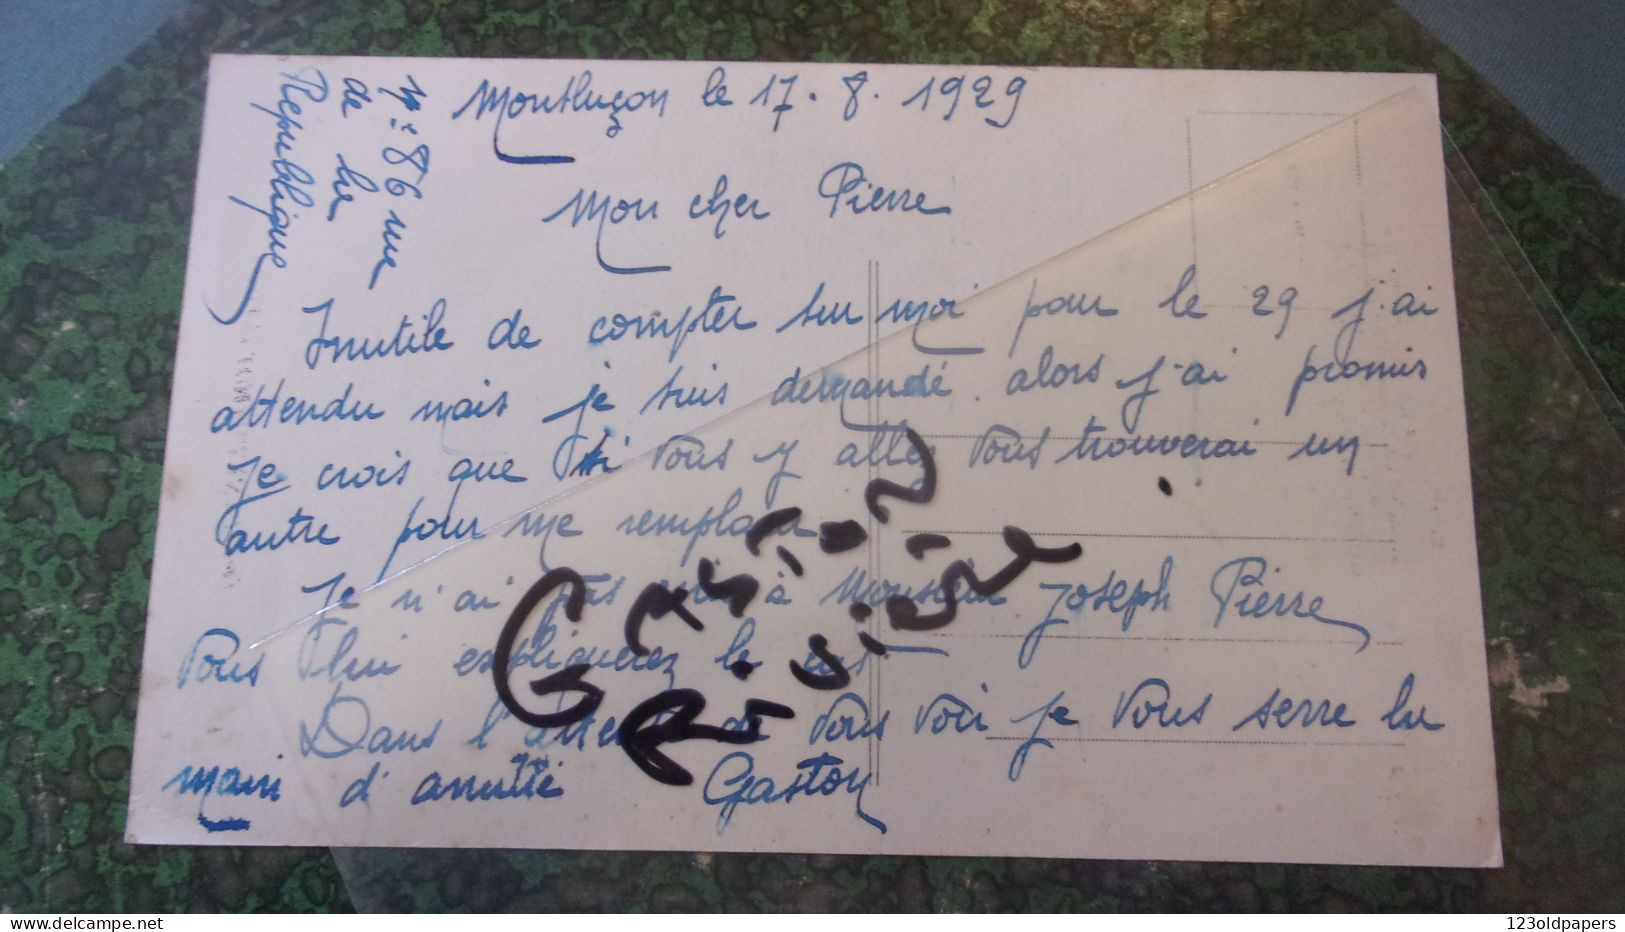 Montluçon le 17. 8. 1929
86 rue
de la
République
Mon cher Pierre
Inutile de compter sur moi pour le 29 j'ai
attendu mais je suis demandé. alors j'ai promis
je crois que si vous y allez vous trouverai un
autre pour me remplacer
Je n'ai pas à Monsieur Joseph Pierre
vous lui expliquerez le
Dans l'attente de vous voir je vous serre la
main d'amitié Gaston
Gaston
Rivsière
123oldpapers